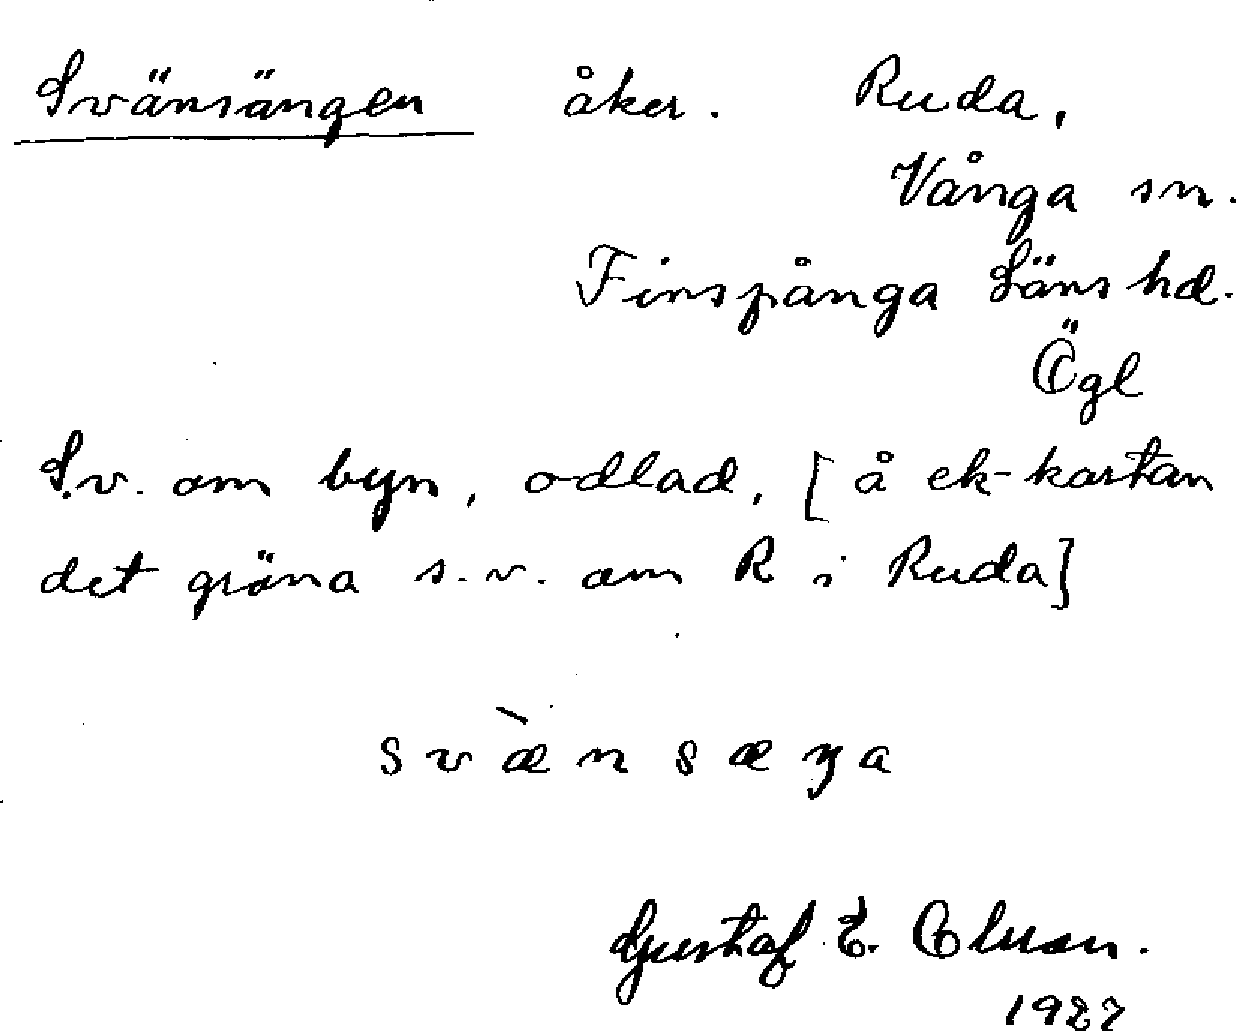 Svänsängen åker. Ruda,
Vånga sn.
Finspånga Läns hd.
Ögl
S.v. om byn, odlad, [å ek-kartan
det gröna s.v. om R i Ruda]
svæ̀nsæŋa
Gustaf E. Olsson.
1927